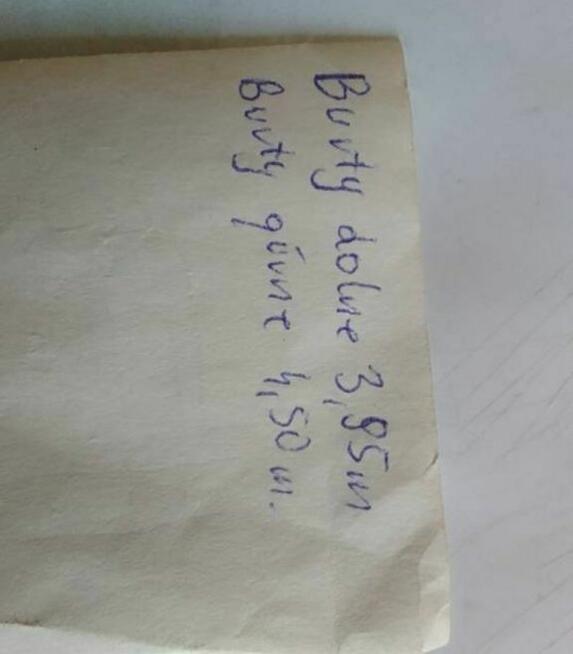 Burty dolne 3,95m
Burty górne 4,50m.